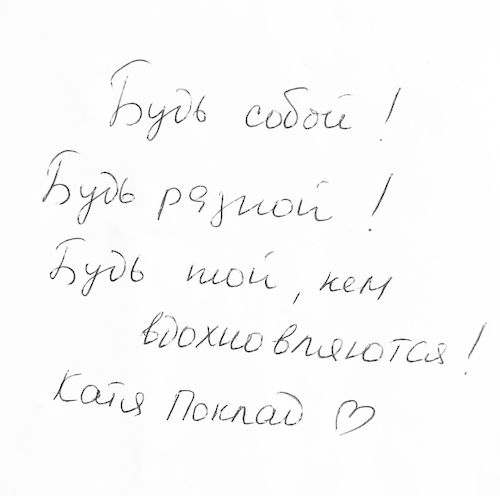 Будь собой!
Будь разной!
Будь той, кем
вдохновляются!
Катя Поклад ♡